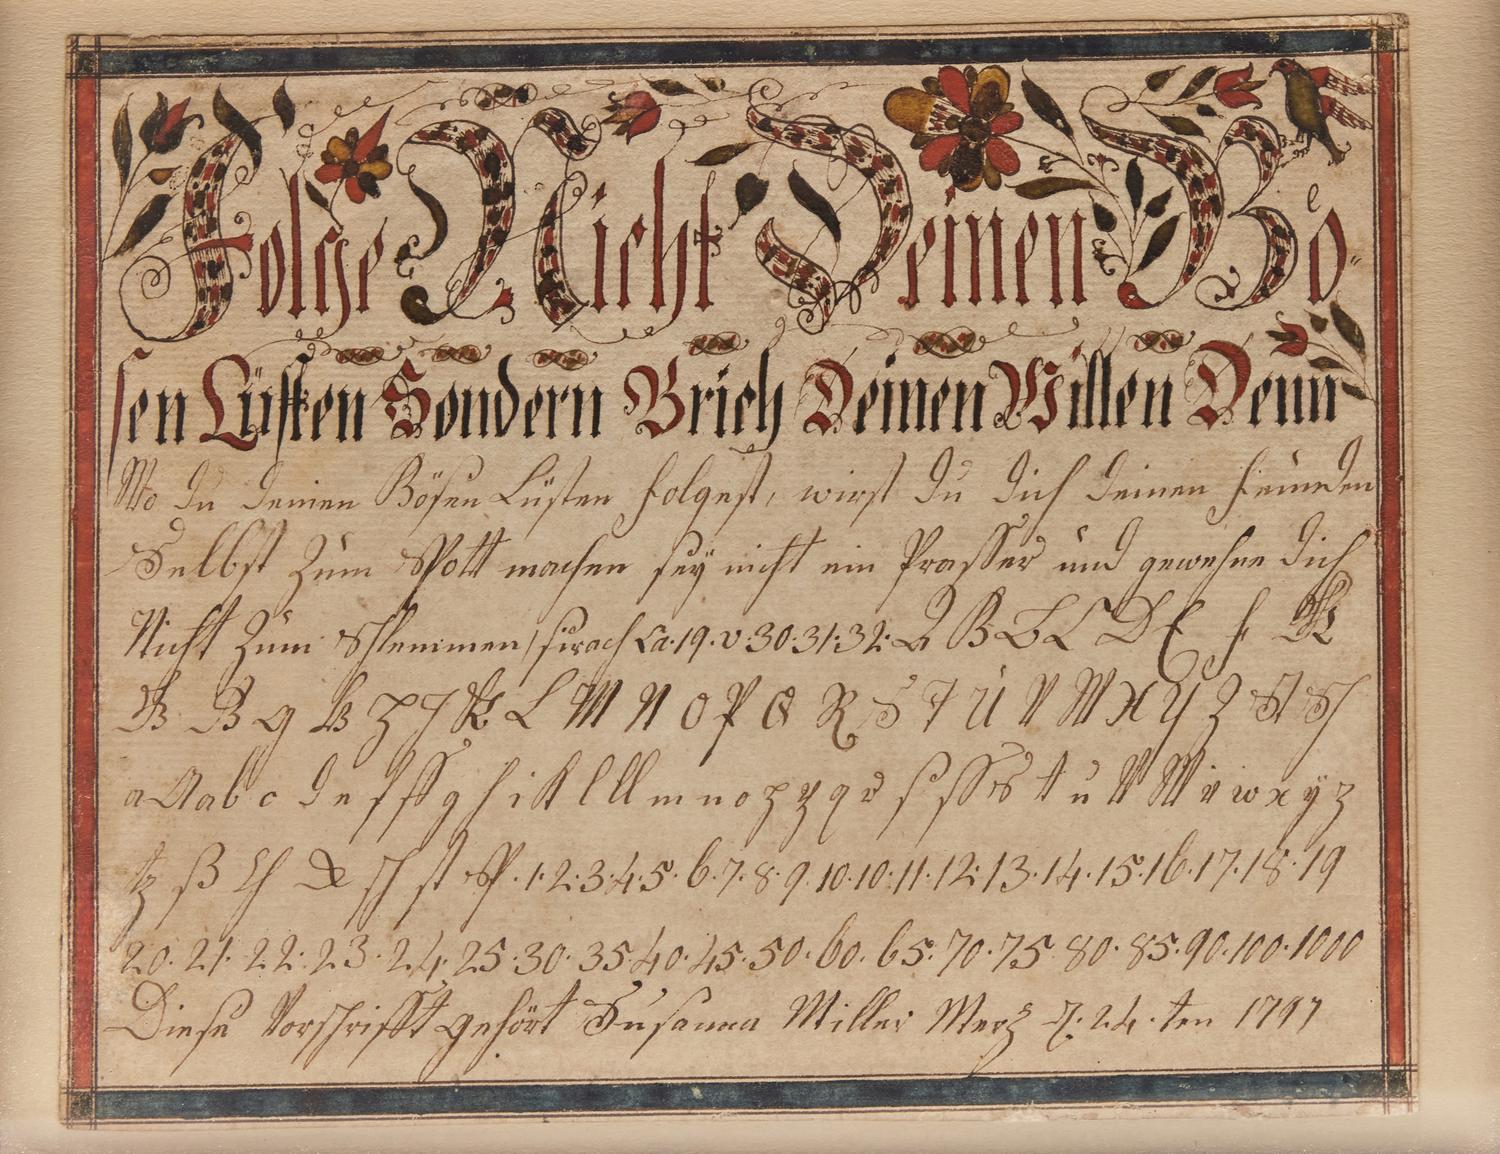 Folge Nicht Deinen Bö„
sen Lüsten Sondern Brich Deinen Willen Denn
Wo du deinen Bösen Lüsten folgest, wirst du dich deinen feinden
Selbst Zum Spott machen sey nicht ein Prasser und gewehne dich
Nicht Zum Schlemmen, sirach Ca. 19. v. 30. 31. 32. A B C D E F
L M N O P Q R S T U V W X Y Z St Sch
a a b c d e f ff g h i k l ll m n o p q r s ss t u v w x y z
tz ß ch sch st sp. 1. 2. 3. 4. 5. 6. 7. 8. 9. 10. 10. 11. 12. 13. 14. 15. 16. 17. 18. 19
20. 21. 22. 23. 24. 25. 30. 35. 40. 45. 50. 60. 65. 70. 75. 80. 85. 90. 100. 1000
Diese Vorschrifft gehört Susanna Miller Merz 24. ten 1797